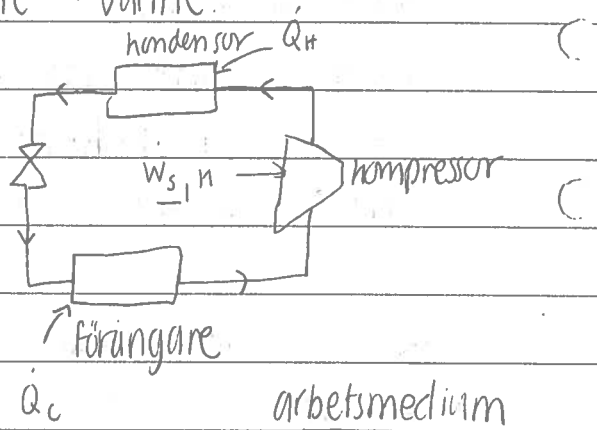 värme.
kondensor Q̇H
Ẇs, n
kompressor
förångare
Q̇c
arbetsmedium